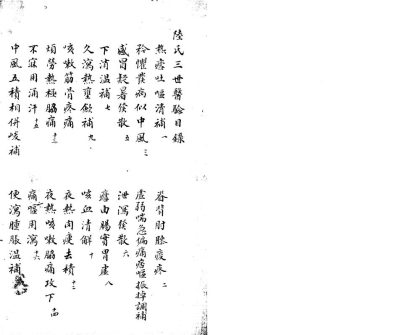 陸氏三世醫驗目錄
熱瘧吐嘔清補 一
脊背肘膝痠疼 二
矜懼發病似中風 三
虛弱喘急偏痛嘔振掉調補
感冒暑散 五
泄瀉散 六
下消溫補 七
瘧由腸實胃虛 八
久瀉熱壅斂補 九
咳血清解 十
咳嗽筋骨疼痛
夜熱肉瘦去積 十二
煩勞熱極脇痛 十三
夜熱咳嗽脇痛攻下 十四
不寐用涌汗 十五
痛嘔用瀉 十六
中風五積相併攻補
便瀉腫脹溫補